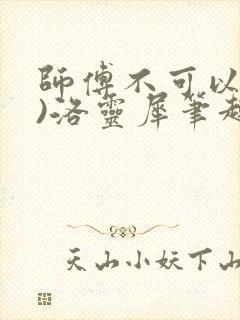 師傅不可以
)洛靈犀筆趣
天山小妖下山